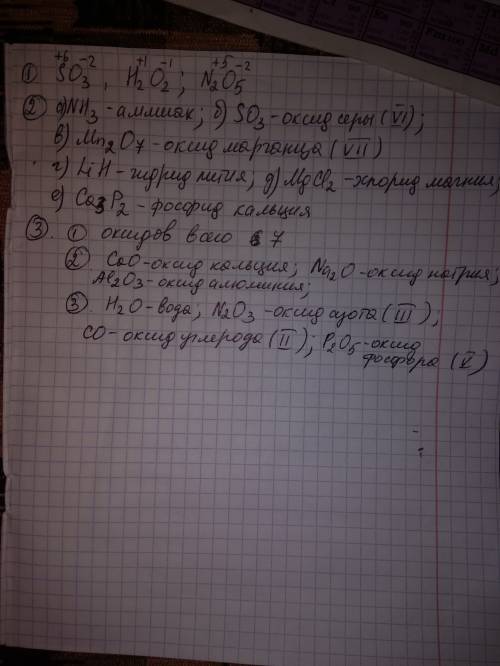 ① S⁺⁶O₃⁻², H₂⁺¹O₂⁻¹; N₂⁺⁵O₅⁻²
② а) NH₃ - аммиак; б) SO₃ - оксид серы (VI);
в) Mn₂O₇ - оксид марганца (VII)
г) LiH - гидрид лития; д) MgCl₂ - хлорид магния;
е) Ca₃P₂ - фосфид кальция
③. ① оксидов всего 7
② CaO - оксид кальция; Na₂O - оксид натрия;
Al₂O₃ - оксид алюминия;
③. H₂O - вода; N₂O₃ - оксид азота (III);
CO - оксид углерода (II); P₂O₅ - оксид
фосфора (V)